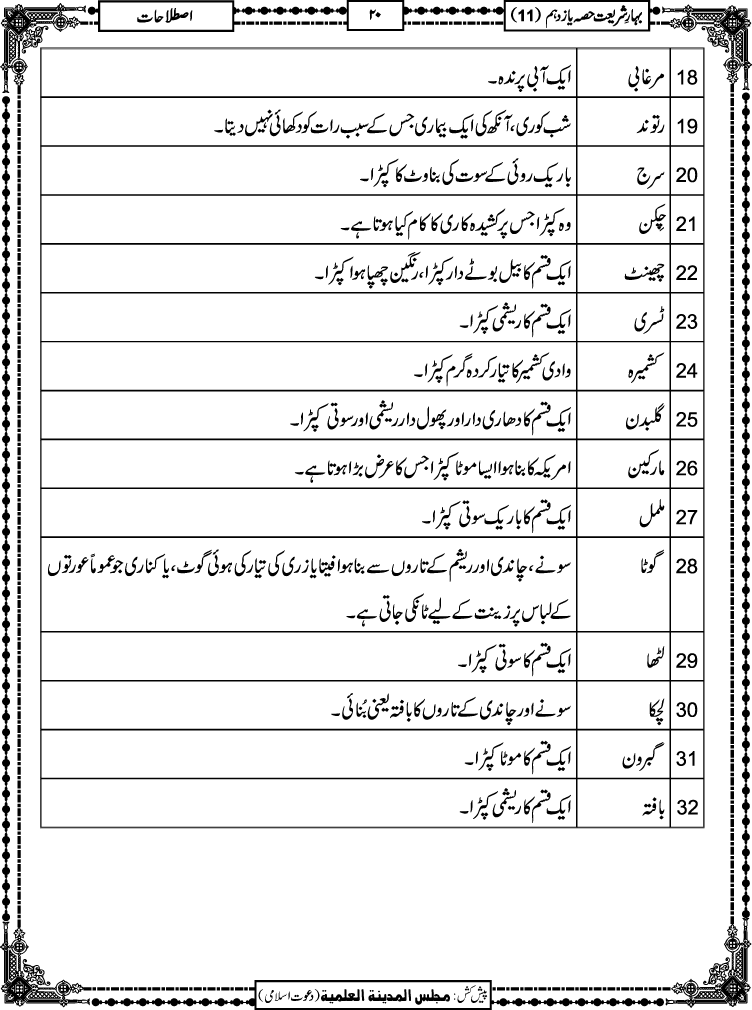 بہارِ شریعت حصہ یازدہم (11)
۲۰
اصطلاحات
18 مرغابی ایک آبی پرندہ۔
19 رتوند شب کوری، آنکھ کی ایک بیماری جس کے سبب رات کو دکھائی نہیں دیتا۔
20 سرج باریک روئی کے سوت کی بناوٹ کا کپڑا۔
21 چکن وہ کپڑا جس پر کشیدہ کاری کا کام کیا ہوتا ہے۔
22 چھینٹ ایک قسم کا بیل بوٹے دار کپڑا، رنگین چھپا ہوا کپڑا۔
23 ٹسری ایک قسم کا ریشمی کپڑا۔
24 کشمیرہ وادی کشمیر کا تیار کردہ گرم کپڑا۔
25 گلبدن ایک قسم کا دھاری دار اور پھول دار ریشمی اور سوتی کپڑا۔
26 مارکین امریکہ کا بنا ہوا ایسا موٹا کپڑا جس کا عرض بڑا ہوتا ہے۔
27 ململ ایک قسم کا باریک سوتی کپڑا۔
28 گوٹا سونے، چاندی اور ریشم کے تاروں سے بنا ہوا فیتا یا زری کی تیار کی ہوئی گوٹ، یا کناری جو عموماً عورتوں
کے لباس پر زینت کے لیے ٹانکی جاتی ہے۔
29 لٹھا ایک قسم کا سوتی کپڑا۔
30 لچکا سونے اور چاندی کے تاروں کا بافتہ یعنی بُنائی۔
31 گبرون ایک قسم کا موٹا کپڑا۔
32 بافتہ ایک قسم کا ریشمی کپڑا۔
پیش کش: مجلس المدینۃ العلمیۃ (دعوت اسلامی)